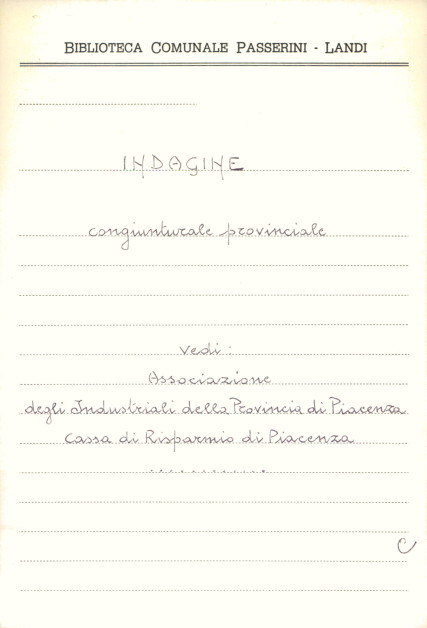 BIBLIOTECA COMUNALE PASSERINI - LANDI
INDAGINE
congiunturale provinciale
vedi:
Associazione
degli Industriali della Provincia di Piacenza
Cassa di Risparmio di Piacenza
............
C